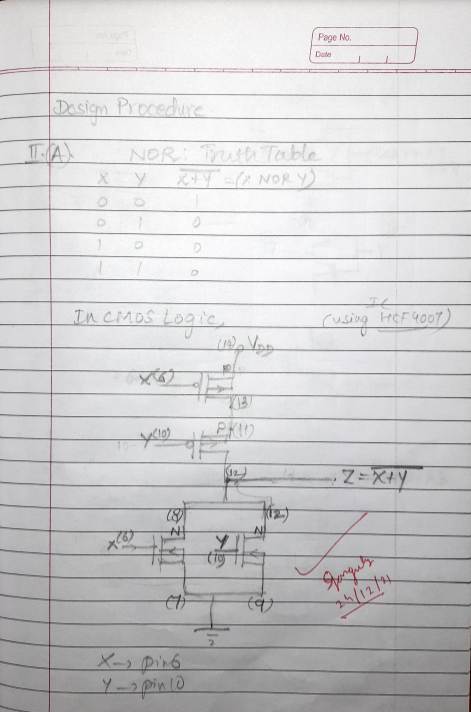 Page No.
Date
Design Procedure
II.(A). NOR: Truth Table
X Y X+Y = (X NOR Y)
0 0 1
0 1 0
1 0 0
1 1 0
In CMOS Logic, (using IC HCF4007)
(14) VDD
X(6) P
(13)
Y(10) P (11)
(12) Z = X+Y
(8) (12)
N N
X(6) Y
(10)
(7) (9)
24/12/21
X → pin 6
Y → pin 10